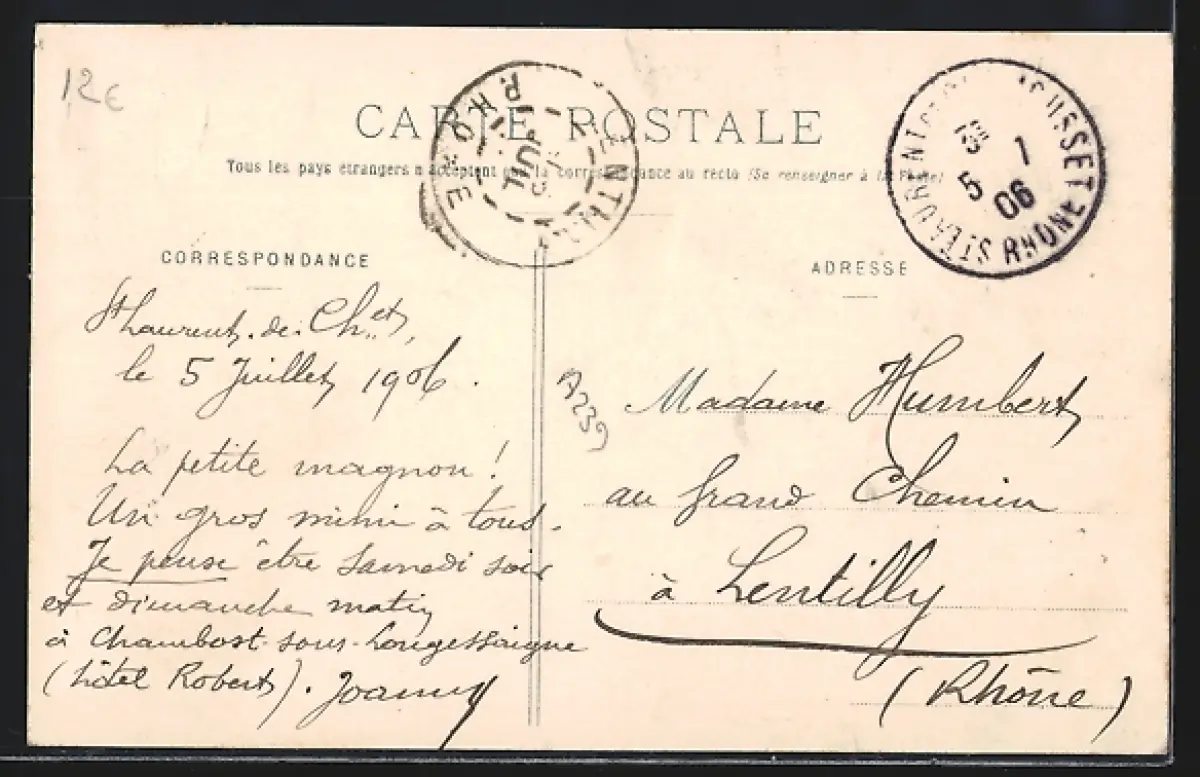 12€
CARTE POSTALE
Tous les pays étrangers n'acceptent pas la correspondance au recto (Se renseigner à la Poste)
RHONE
JUIL
ST LAURENT RHÔNE
5
06
CORRESPONDANCE
ADRESSE
St Laurent-de-Chet,
le 5 Juillet 1906.
La petite magnon!
Un gros mimi à tous.
Je pense être Samedi soir
et dimanche matin
à Chambost-sous-Longessaigne
(hôtel Robert). Joanny
A239
Madame Humbert
au Grand Chemin
à Lentilly
(Rhône)